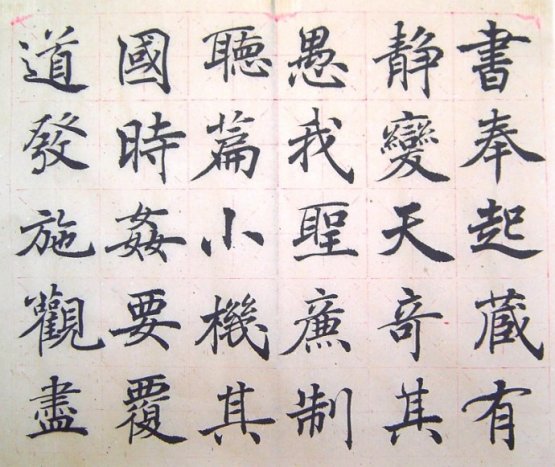 書奉起蔵有
静變天奇其
愚我聖廉制
聴篇小機其
國時姦要覆
道發施觀盡